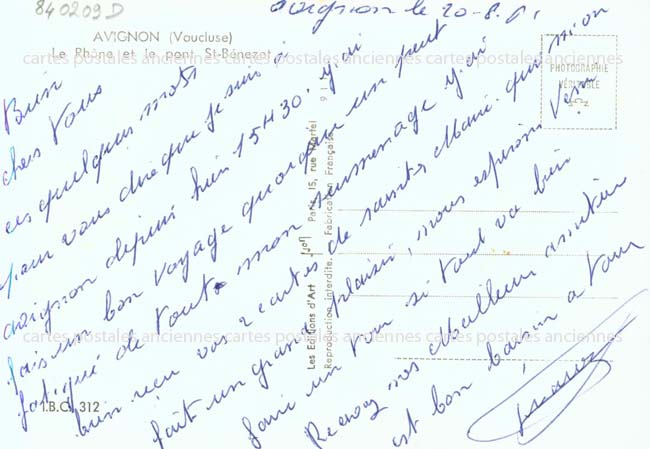 840209 D
AVIGNON (Vaucluse)
Le Rhône et le pont St-Bénezet
cartes postales anciennes cartes postales anciennes cartes postales anciennes cartes postales anciennes
PHOTOGRAPHIE
VÉRITABLE
Avignon le 20-8.
Bien
chers Vous
ces quelques mots
pour vous dire que je suis à
Avignon depuis hier 15H30. J'ai
fais un bon voyage quoique un peut
fatigué de tout mon surmenage J'ai
bien reçu vos 2 cartes de saintes Marie qui m'on
fait un grand plaisir, nous espérons
faire un tour si tout va bien
Recevez nos Meilleur
et bon baiser a tous
Les Editions d'Art Paris 15, rue Martel
Reproduction Interdite. Fabrication Française
I.B.C. 312
cartes postales anciennes cartes postales anciennes cartes postales anciennes cartes postales anciennes